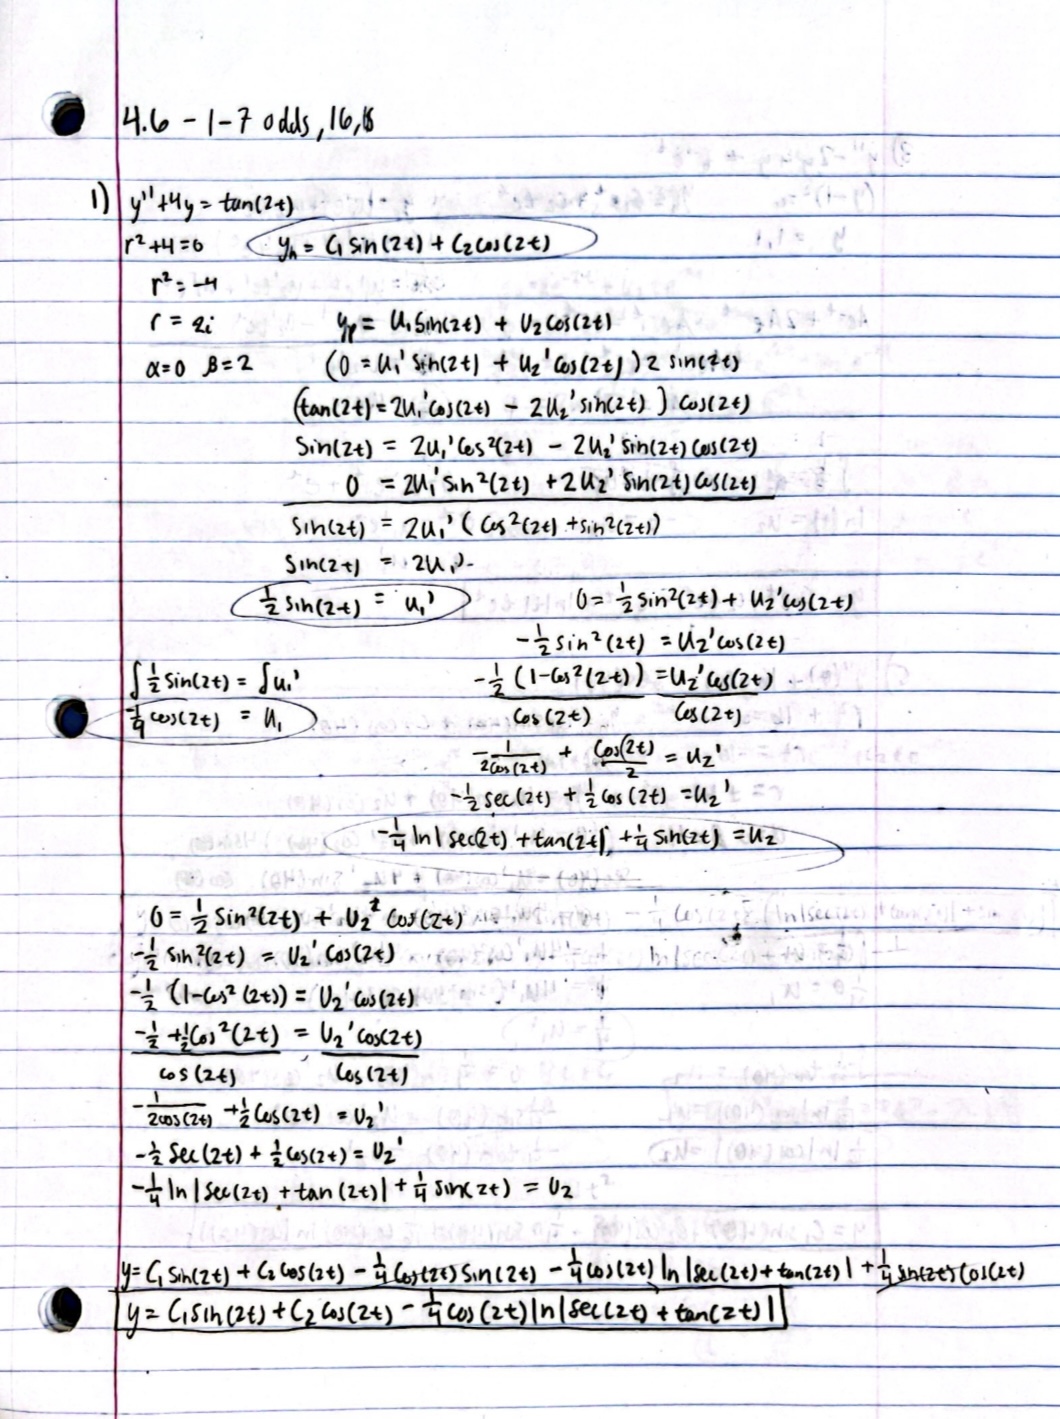 4.6 - 1-7 odds, 16, 18
1) y'' + 4y = tan(2t)
r² + 4 = 0
y_h = C₁ sin(2t) + C₂ cos(2t)
r² = -4
r = 2i
y_p = u₁ sin(2t) + u₂ cos(2t)
α=0 β=2
(0 = u₁' sin(2t) + u₂' cos(2t)) 2 sin(2t)
(tan(2t) = 2u₁' cos(2t) - 2u₂' sin(2t)) cos(2t)
sin(2t) = 2u₁' cos²(2t) - 2u₂' sin(2t) cos(2t)
0 = 2u₁' sin²(2t) + 2u₂' sin(2t) cos(2t)
sin(2t) = 2u₁' (cos²(2t) + sin²(2t))
sin(2t) = 2u₁'
½ sin(2t) = u₁'
0 = ½ sin²(2t) + u₂' cos(2t)
-½ sin²(2t) = u₂' cos(2t)
∫ ½ sin(2t) = ∫ u₁'
-¼ cos(2t) = u₁
-½ (1 - cos²(2t)) / cos(2t) = u₂' cos(2t) / cos(2t)
-1/(2cos(2t)) + cos(2t)/2 = u₂'
-½ sec(2t) + ½ cos(2t) = u₂'
-¼ ln|sec(2t) + tan(2t)| + ¼ sin(2t) = u₂
0 = ½ sin²(2t) + u₂' cos(2t)
-½ sin²(2t) = u₂' cos(2t)
-½ (1 - cos²(2t)) = u₂' cos(2t)
(-½ + ½ cos²(2t)) / cos(2t) = u₂' cos(2t) / cos(2t)
-1/(2cos(2t)) + ½ cos(2t) = u₂'
-½ sec(2t) + ½ cos(2t) = u₂'
-¼ ln|sec(2t) + tan(2t)| + ¼ sin(2t) = u₂
y = C₁ sin(2t) + C₂ cos(2t) - ¼ cos(2t) sin(2t) - ¼ cos(2t) ln|sec(2t) + tan(2t)| + ¼ sin(2t) cos(2t)
y = C₁ sin(2t) + C₂ cos(2t) - ¼ cos(2t) ln|sec(2t) + tan(2t)|